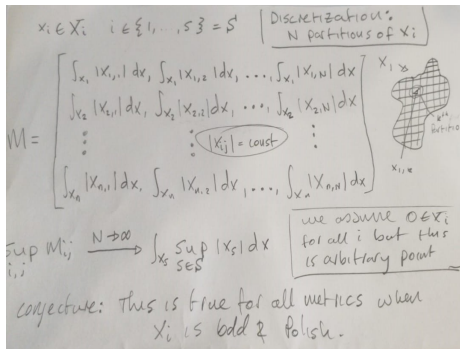 xᵢ ∈ Xᵢ i ∈ {1, ..., 5} = S
Discretization:
N partitions of Xᵢ
M = [ ∫_{X₁} |X₁,₁| dx, ∫_{X₁} |X₁,₂| dx, ..., ∫_{X₁} |X₁,N| dx
∫_{X₂} |X₂,₁| dx, ∫_{X₂} |X₂,₂| dx, ..., ∫_{X₂} |X₂,N| dx
⋮ ⋮ |Xᵢⱼ| = const ⋮
∫_{Xₙ} |Xₙ,₁| dx, ∫_{Xₙ} |Xₙ,₂| dx, ..., ∫_{Xₙ} |Xₙ,N| dx ]
X₁,
X₁,
Sup_{i,j} Mᵢⱼ —N→∞→ ∫_{X_S} Sup_{s∈S} |X_s| dx
we assume 0 ∈ Xᵢ
for all i but this
is arbitrary point
conjecture: This is true for all metrics when
Xᵢ is bdd & Polish.